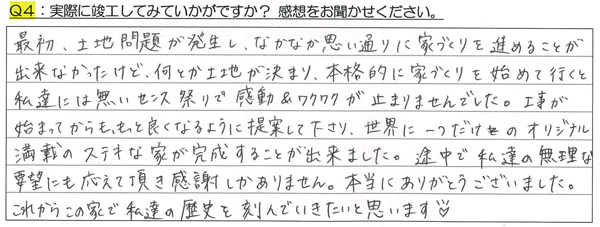 Q4：実際に竣工してみていかがですか？ 感想をお聞かせください。
最初、土地問題が発生し、なかなか思い通りに家づくりを進めることが
出来なかったけど、何とか土地が決まり、本格的に家づくりを始めて行くと
私達には無いセンス祭りで感動&ワクワクが止まりませんでした。工事が
始まってからも、もっと良くなるように提案して下さり、世界に一つだけのオリジナル
満載のステキな家が完成することが出来ました。途中で私達の無理な
要望にも応えて頂き感謝しかありません。本当にありがとうございました。
これからこの家で私達の歴史を刻んでいきたいと思います♡